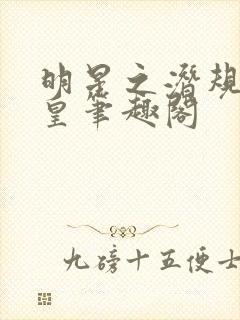 明星之潜规
皇笔趣阁
九磅十五便士